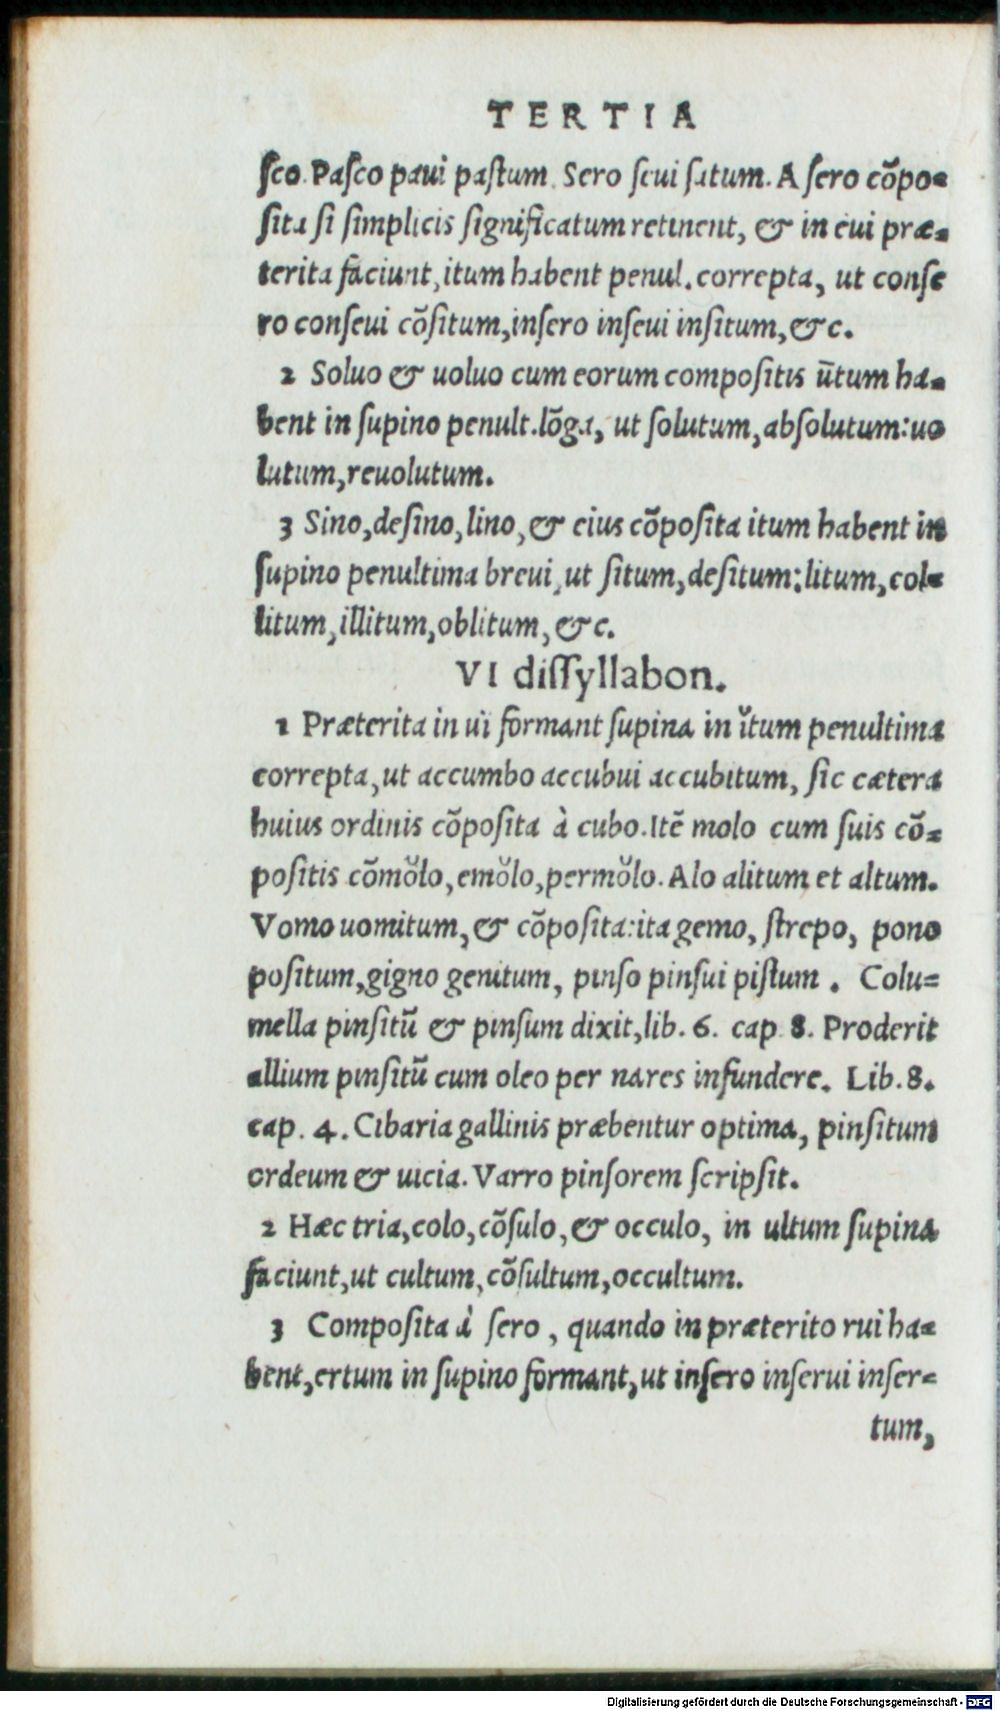 TERTIA
ſco. Paſco paui paſtum. Sero ſeui ſatum. A ſero cõpo-
ſita ſi ſimplicis ſignificatum retinent, & in eui præ-
terita faciunt, itum habent penul. correpta, ut conſe
ro conſeui cõſitum, inſero inſeui inſitum, & c.
2 Soluo & uoluo cum eorum compoſitis ūtum ha-
bent in ſupino penult. lõga, ut ſolutum, abſolutum: uo
lutum, reuolutum.
3 Sino, deſino, lino, & eius cõpoſita itum habent in
ſupino penultima breui, ut ſitum, deſitum: litum, col-
litum, illitum, oblitum, & c.
VI diſſyllabon.
1 Præterita in ui formant ſupina in ĭtum penultima
correpta, ut accumbo accubui accubitum, ſic cætera
huius ordinis cõpoſita à cubo. Itẽ molo cum ſuis cõ-
poſitis cõmŏlo, emŏlo, permŏlo. Alo alitum et altum.
Vomo uomitum, & cõpoſita: ita gemo, ſtrepo, pono
poſitum, gigno genitum, pinſo pinſui piſtum. Colu-
mella pinſitũ & pinſum dixit, lib. 6. cap 8. Proderit
allium pinſitũ cum oleo per nares infundere. Lib. 8.
cap. 4. Cibaria gallinis præbentur optima, pinſitum
ordeum & uicia. Varro pinſorem ſcripſit.
2 Hæc tria, colo, cõſulo, & occulo, in ultum ſupina
faciunt, ut cultum, cõſultum, occultum.
3 Compoſita à ſero, quando in præterito rui ha-
bent, ertum in ſupino formant, ut inſero inſerui inſer-
tum,
Digitalisierung gefördert durch die Deutsche Forschungsgemeinschaft - DFG